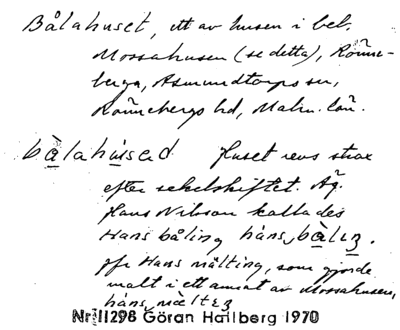 Bålahuset, ett av husen i beb.
Mossahusen (se detta), Rönne-
berga, Asmundtorps sn,
Rönnebergs hd, Malm. län.
bàlahúsed Huset revs strax
efter sekelskiftet. Äg.
Hans Nilsson kallades
Hans båling hàns, bàlıȝ.
jfr Hans målting, som gjorde
malt i ett annat av Mossahusen,
hàns, màltıȝ
Nr 11298 Göran Hallberg 1970